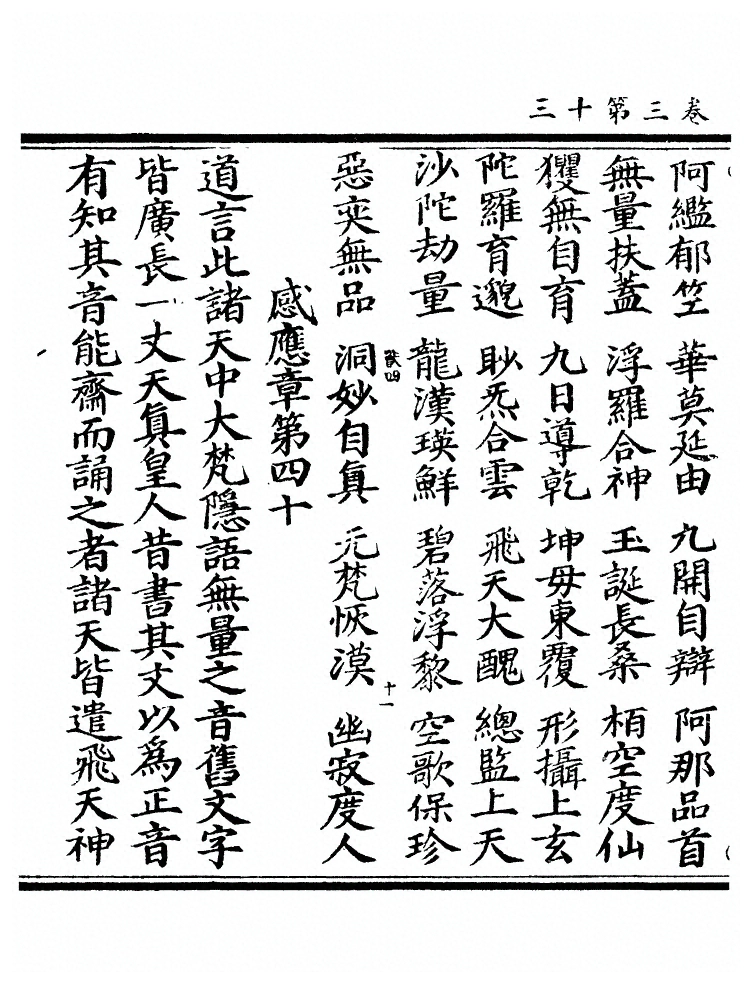 卷三第十三
阿籃郁竺 華莫延由 九開自辯 阿那品首
無量扶蓋 浮羅合神 玉誕長桑 栢空度仙
玃無自育 九日導乾 坤母東覆 形攝上玄
陀羅育邈 眇炁合雲 飛天大醜 總監上天
沙陀劫量 龍漢瑛鮮 碧落浮黎 空歌保珍
十一
惡奕無品 洞妙自真 元梵恢漠 幽寂度人
感應章第四十
道言此諸天中大梵隱語無量之音舊文字
皆廣長一丈天真皇人昔書其文以為正音
有知其音能齋而誦之者諸天皆遣飛天神